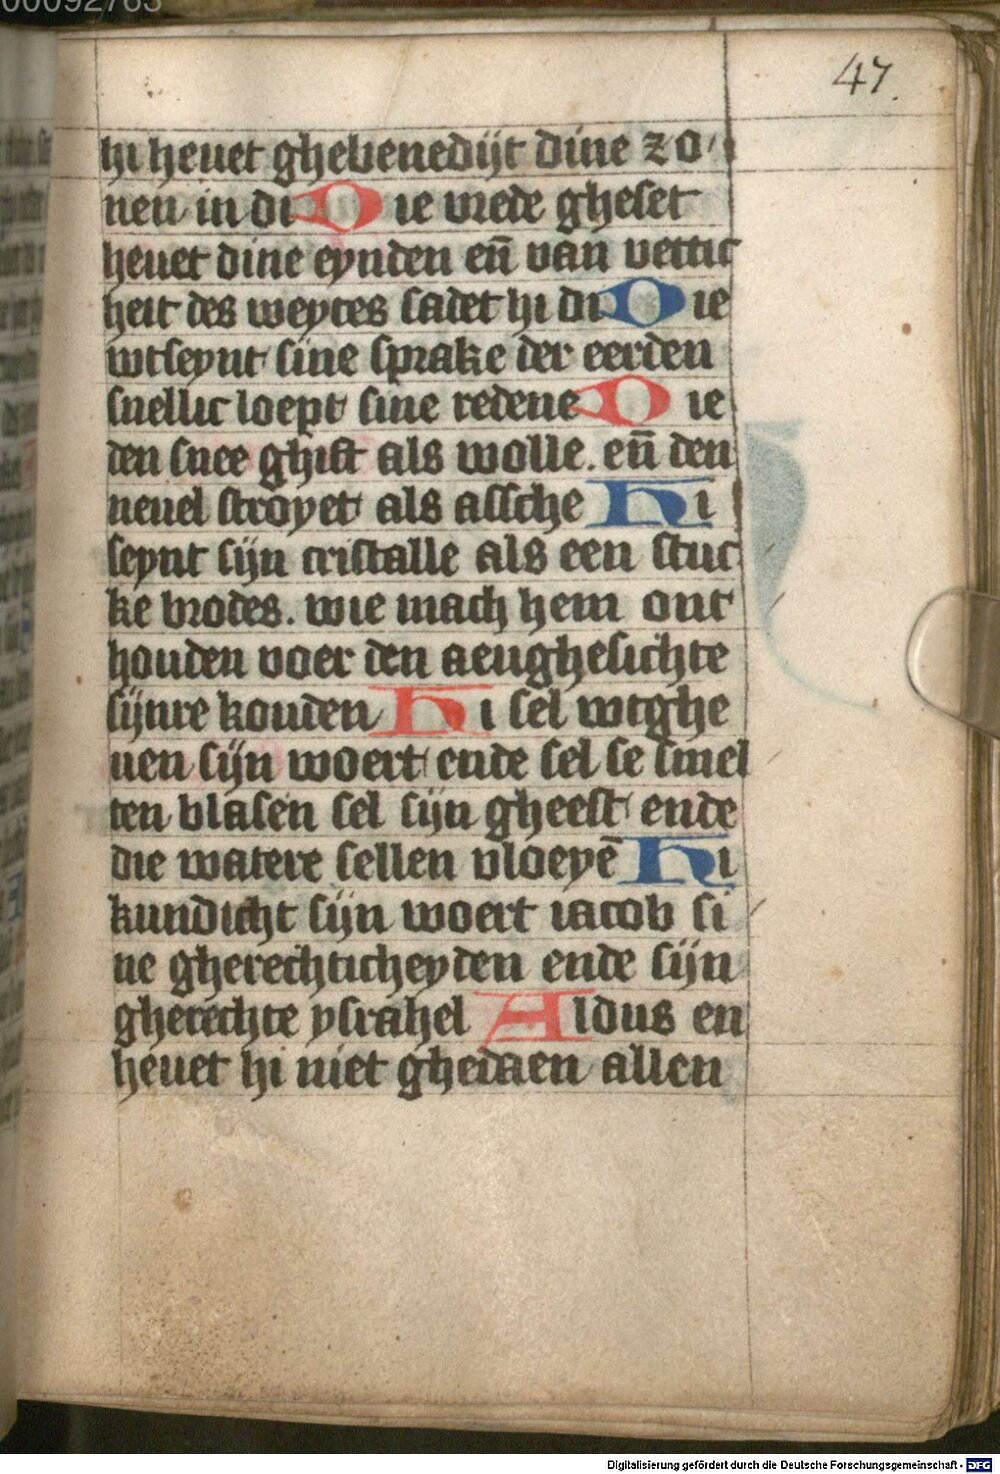 00092763
47.
hi heuet ghebenedijt dine zo
nen in di Die vrede gheset
heuet dine eynden en̄ van vettic
heit des weytes sadet hi di Die
wtseynt sine sprake der eerden
snellic loept sine redene Die
den snee ghift als wolle. en̄ den
neuel stroyet als assche Hi
seynt sijn cristalle als een stuc
ke brodes. wie mach hem ont
houden voer den aenghesichte
sijnre kouden Hi sel wtghe
uen sijn woert ende sel se smel
ten blasen sel sijn gheest ende
die watere sellen vloeyē Hi
kundicht sijn woert iacob si
ne gherechticheyden ende sijn
gherechte ysrahel Aldus en
heuet hi niet ghedaen allen
Digitalisierung gefördert durch die Deutsche Forschungsgemeinschaft - DFG